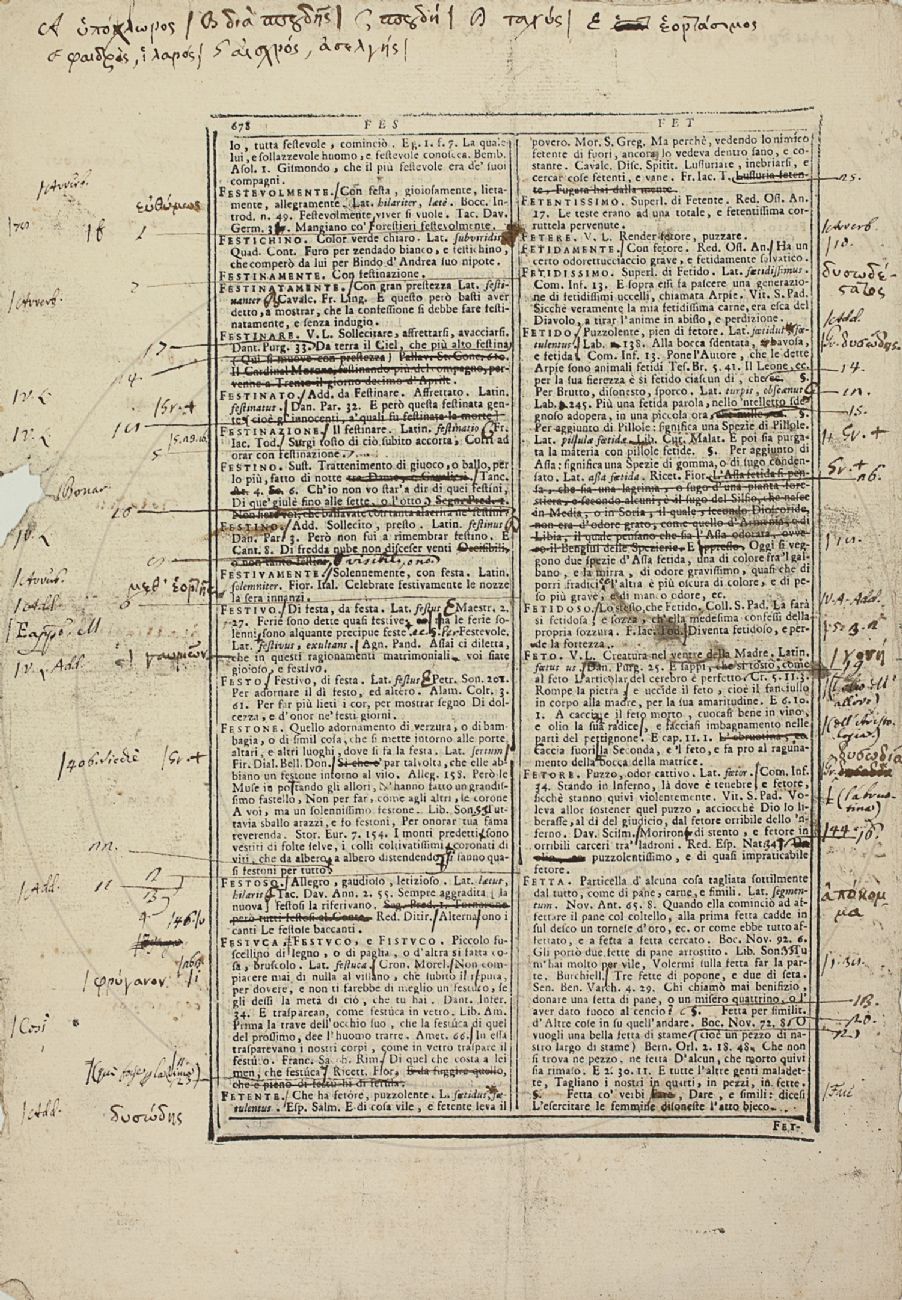 Α ὑπόχλωρος | Β διὰ σπουδῆς | ς σπουδή | ταχύς | Ε ἑορτάσιμος
φαιδρὸς, ἱλαρος | αἰσχρός, ἀσελγής |
678 FES
lo, tutta festevole, cominciò. Eg. 1. f. 7. La quale
lui, e sollazzevole huomo, e festevole conosca. Bemb.
Asol. 1. Gismondo, che il più festevole era de' suoi
compagni.
FESTEVOLMENTE. Con festa, gioiosamente, lieta-
mente, allegramente. Lat. hilariter, lætè. Bocc. In-
trod. n. 49. Festevolmente viver si vuole. Tac. Dav.
Germ. Mangiano co' Forestieri festevolmente.
FESTICHINO. Color verde chiaro. Lat. subviridis
Quad. Cont. Furo per zendado bianco, e festichino,
che comperò da lui per Bindo d'Andrea suo nipote.
FESTINAMENTE. Con festinazione.
FESTINATAMENTE. Con gran prestezza Lat. festi-
nanter. Cavalc. Fr. Ling. E questo però basti aver
detto, a mostrar, che la confessione si debbe fare festi-
natamente, e senza indugio.
FESTINARE. V. L. Sollecitare, affrettarsi, avacciarsi.
Dant. Purg. 33. Da terra il Ciel, che più alto festina
(Qui si muove con prestezza) Pallav. St. Conc. 610.
Il Cardinal Morone, festinando più del compagno, per-
venne a Trento il giorno decimo d'Aprile.
FESTINATO. Add. da Festinare. Affrettato. Latin.
festinatus. Dan. Par. 32. E però questa festinata gen-
te (cioè gl'innocenti, a' quali fu festinata la morte)
FESTINAZIONE. Il festinare. Latin. festinatio. Fr.
Iac. Tod. Surgi tosto di ciò subito accorta, Corri ad
orar con festinazione.
FESTINO. Sust. Trattenimento di giuoco, o ballo, per
lo più, fatto di notte tra Dame, e Cavalieri. Tanc.
At. 4. Sc. 6. Ch'io non vo star'a dir di quei festini,
Di que' giule fino alle sette, o l'otto. Segn. Pred. 4.
Non siete voi, che ballavate con tanta alacrità ne' festini?
FESTINO. Add. Sollecito, presto. Latin. festinus
Dan. Par. 3. Però non fui a rimembrar festino. E
Cant. 8. Di fredda nube non disceser venti O visibili,
o non tanto festini. o visibili, o no
FESTIVAMENTE. Solennemente, con festa. Latin.
solemniter. Fior. Ital. Celebrate festivamente le nozze
la sera innanzi.
FESTIVO. Di festa, da festa. Lat. festus. Maestr. 2.
27. Ferie sono dette quasi festive ma le ferie so-
lenni sono alquante precipue feste. §. Per Festevole.
Lat. festivus, exultans. Agn. Pand. Assai ci diletta,
che in questi ragionamenti matrimoniali voi siate
gioioso, e festivo.
FESTO. Festivo, di festa. Lat. festus. Petr. Son. 201.
Per adornare il dì festo, ed altero. Alam. Colt. 3.
61. Per far più lieti i cor, per mostrar segno Di dol-
cezza, e d'onor ne' festi giorni.
FESTONE. Quello adornamento di verzura, o di bam-
bagia, o di simil cosa, che si mette intorno alle porte
altari, e altri luoghi, dove si fa la festa. Lat. sertum
Fir. Dial. Bell. Don. Sì che e' par talvolta, che elle ab-
biano un festone intorno al viso. Alleg. 158. Però le
Muse in postando gli allori, N'hanno fatto un grandis-
simo fastello, Non per far, come agli altri, le corone
A voi, ma un solennissimo festone. Lib. Son. 55 Tut-
tavia sballo arazzi, e fo festoni, Per onorar tua fama
reverenda. Stor. Eur. 7. 154. I monti predetti sono
vestiti di folte selve, i colli coltivatissimi, e coronati di
viti, che da albero a albero distendendosi fanno qua-
si festoni per tutto.
FESTOSO. Allegro, gaudioso, letizioso. Lat. lætus,
hilaris. Tac. Dav. Ann. 2. 55. Sempre aggradita, la
nuova, e festosi la riferivano. Seg. Pred. 1. Tornarono
però tutti festosi al Conte. Red. Ditir. Alternasono i
canti Le festose baccanti.
FESTUCA, FESTUCO, E FISTUCO. Piccolo fu-
scellino di legno, o di paglia, o d'altra sì fatta co-
sa, bruscolo. Lat. festuca. Cron. Morel. Non com-
piacere mai di nulla al villano, che subito il reputa,
per dovere, e non ti farebbe di meglio un festuco, se
gli dessi la metà di ciò, che tu hai. Dant. Infer.
34. E trasparean, come festuca in vetro. Lib. Am.
Prima la trave dell'occhio suo, che la festuca di quel
del prossimo, dee l'huomo trarre. Amet. 66. In essa
trasparevano i nostri corpi, come in vetro traspare il
festuco. Franc. Sacch. Rim. Di quel che costa a lei
men, che festuca. Ricett. Fior. E da fuggire quello,
che è pieno di festuchi di ferula.
FETENTE. Che ha fetore, puzzolente. L. fœtidus, fœ-
tulentus. Esp. Salm. E di cosa vile, e fetente leva il
FET
povero. Mor. S. Greg. Ma perchè, vedendo lo nimico
fetente di fuori, ancora lo vedeva dentro sano, e co-
stante. Cavalc. Disc. Spirit. Lussuriare, inebriarsi, e
cercar cose fetenti, e vane. Fr. Iac. T. Lussuria feten-
te, Fugera hai dalla mente.
FETENTISSIMO. Superl. di Fetente. Red. Oss. An.
17. Le teste erano ad una totale, e fetentissima cor-
ruttela pervenute.
FETERE. V. L. Render fetore, puzzare.
FETIDAMENTE. Con fetore. Red. Oss. An. Ha un
certo odorettucciaccio grave, e fetidamente salvatico.
FETIDISSIMO. Superl. di Fetido. Lat. fœtidissimus.
Com. Inf. 13. E sopra essi fa pascere una generazio-
ne di fetidissimi uccelli, chiamata Arpie. Vit. S. Pad.
Sicche veramente la mia fetidissima carne, era esca del
Diavolo, a tirar l'anime in abisso, e perdizione.
FETIDO. Puzzolente, pien di fetore. Lat. fœtidus, fœ-
tulentus. Lab. 138. Alla bocca sdentata, bavosa,
e fetida. Com. Inf. 13. Pone l'Autore, che le dette
Arpie sono animali fetidi Tes. Br. 5. 41. Il Leone, ec.
per la sua fierezza è sì fetido ciascun dì, che ec. §.
Per Brutto, disonesto, sporco, Lat. turpis, obscœnus
Lab. 245. Più una fetida parola, nello 'ntelletto sde-
gnoso adopera, in una piccola ora, che mille ec. §.
Per aggiunto di Pillole: significa una Spezie di Pillole.
Lat. pillulæ fœtidæ. Lib. Cur. Malat. E poi sia purga-
ta la materia con pillole fetide. §. Per aggiunto di
Assa: significa una Spezie di gomma, o di sugo conden-
sato. Lat. assa fœtida. Ricet. Fior. L'Assa fetida si pen-
sa, che sia una lagrima, o sugo d'una pianta fore-
stiera, e secondo alcuni, è il sugo del Silfio, che nasce
in Media, o in Soria, il quale, secondo Dioscoride,
non era d'odore grato, come quello d'Armenia, o di
Libia, il quale pensano che sia l'Assa odorata, ovve-
ro il Bengiuì delle Spezierie. E appresso. Oggi si veg-
gono due spezie d'Assa fetida, una di colore fra 'l gal-
bano, e la mirra, di odore gravissimo, quasi che di
porri fradici, l'altra è più oscura di colore, e di pe-
so più grave, e di manco odore, ec.
FETIDOSO. Lo stesso, che Fetido. Coll. S. Pad. La farà
sì fetidosa, e sozza, ch'ella medesima confessi della
propria sozzura. F. Iac. Tod. Diventa fetidoso, e per-
de la fortezza.
FETO. V. L. Creatura nel ventre della Madre. Latin.
fœtus us. Dan. Purg. 25. E sappi, che sì tosto, come
al feto L'articolar del cerebro è perfetto. Cr. 5. 11. 3.
Rompe la pietra, e uccide il feto, cioè il fanciullo
in corpo alla madre, per la sua amaritudine. E 6. 10.
1. A cacciare il feto morto, cuocasi bene in vino,
e olio la sua radice, e facciasi imbagnamento nelle
parti del pettignone. E cap. 11. 1. L'abruotina, ec.
caccia fuori la Seconda, e 'l feto, e fa pro al raguna-
mento della bocca della matrice.
FETORE. Puzzo, odor cattivo. Lat. fœtor. Com. Inf.
34. Stando in Inferno, là dove è tenebre, e fetore,
sicchè stanno quivi violentemente. Vit. S. Pad. Vo-
leva allor sostener quel puzzo, acciocchè Dio lo li-
berasse, al dì del giudicio, dal fetore orribile dello 'n-
ferno. Dav. Scism. Morirono di stento, e fetore in
orribili carceri tra' ladroni. Red. Esp. Nat.
puzzolentissimo, e di quasi impraticabile
fetore.
FETTA. Particella d'alcuna cosa tagliata sottilmente
dal tutto, come di pane, carne, e simili. Lat. segmen-
tum. Nov. Ant. 65. 8. Quando ella cominciò ad af-
fettare il pane col coltello, alla prima fetta cadde in
sul desco un tornese d'oro, ec. or come ebbe tutto af-
fettato, e a fetta a fetta cercato. Boc. Nov. 92. 6.
Gli portò due fette di pane arrostito. Lib. Son. 35 Tu
m'hai molto per vile, Volermi sulla fetta far la par-
te. Burchiell. Tre fette di popone, e due di seta.
Sen. Ben. Varch. 4. 29. Chi chiamò mai benifizio,
donare una fetta di pane, o un misero quattrino, o l'
aver dato fuoco al cencio? §. Fetta per similit.
d'Altre cose in su quell'andare. Bocc. Nov. 72, 8.
vuogli una bella fetta di stame? (cioè un pezzo di na-
stro largo di stame) Bern. Orl. 2. 18. 48. Che non
si trova ne pezzo, ne fetta D'alcun, che morto quivi
sia rimaso. E 2. 30. 11. E tutte l'altre genti maladet-
te, Tagliano i nostri in quarti, in pezzi, in fette.
§. Fetta co' verbi Fare, Dare, e simili: dicesi
L'esercitare le femmine disoneste l'atto bieco.
FET-
|Avverb.
εὐθύμως
|Avverb.
17
14
|V. L
|V. L
|Avverb.
μεθ' ἑορτῆς
|Add.
|V. Add.
|406. Siechè |Sv. +
|Add. 11
12
13
φρύγανον
|Così
|Add. δυσώδης
25.
|Avverb.
|10.
δυσωδέ-
στατος
|Add.
δυσώδης
14.
15.
Sv. +
26.
|V. A. Add.
γονή
δυσωδία
(labruo-
tina)
|144
ἀπόκομ-
μα
|1.30.
20.
|Fui